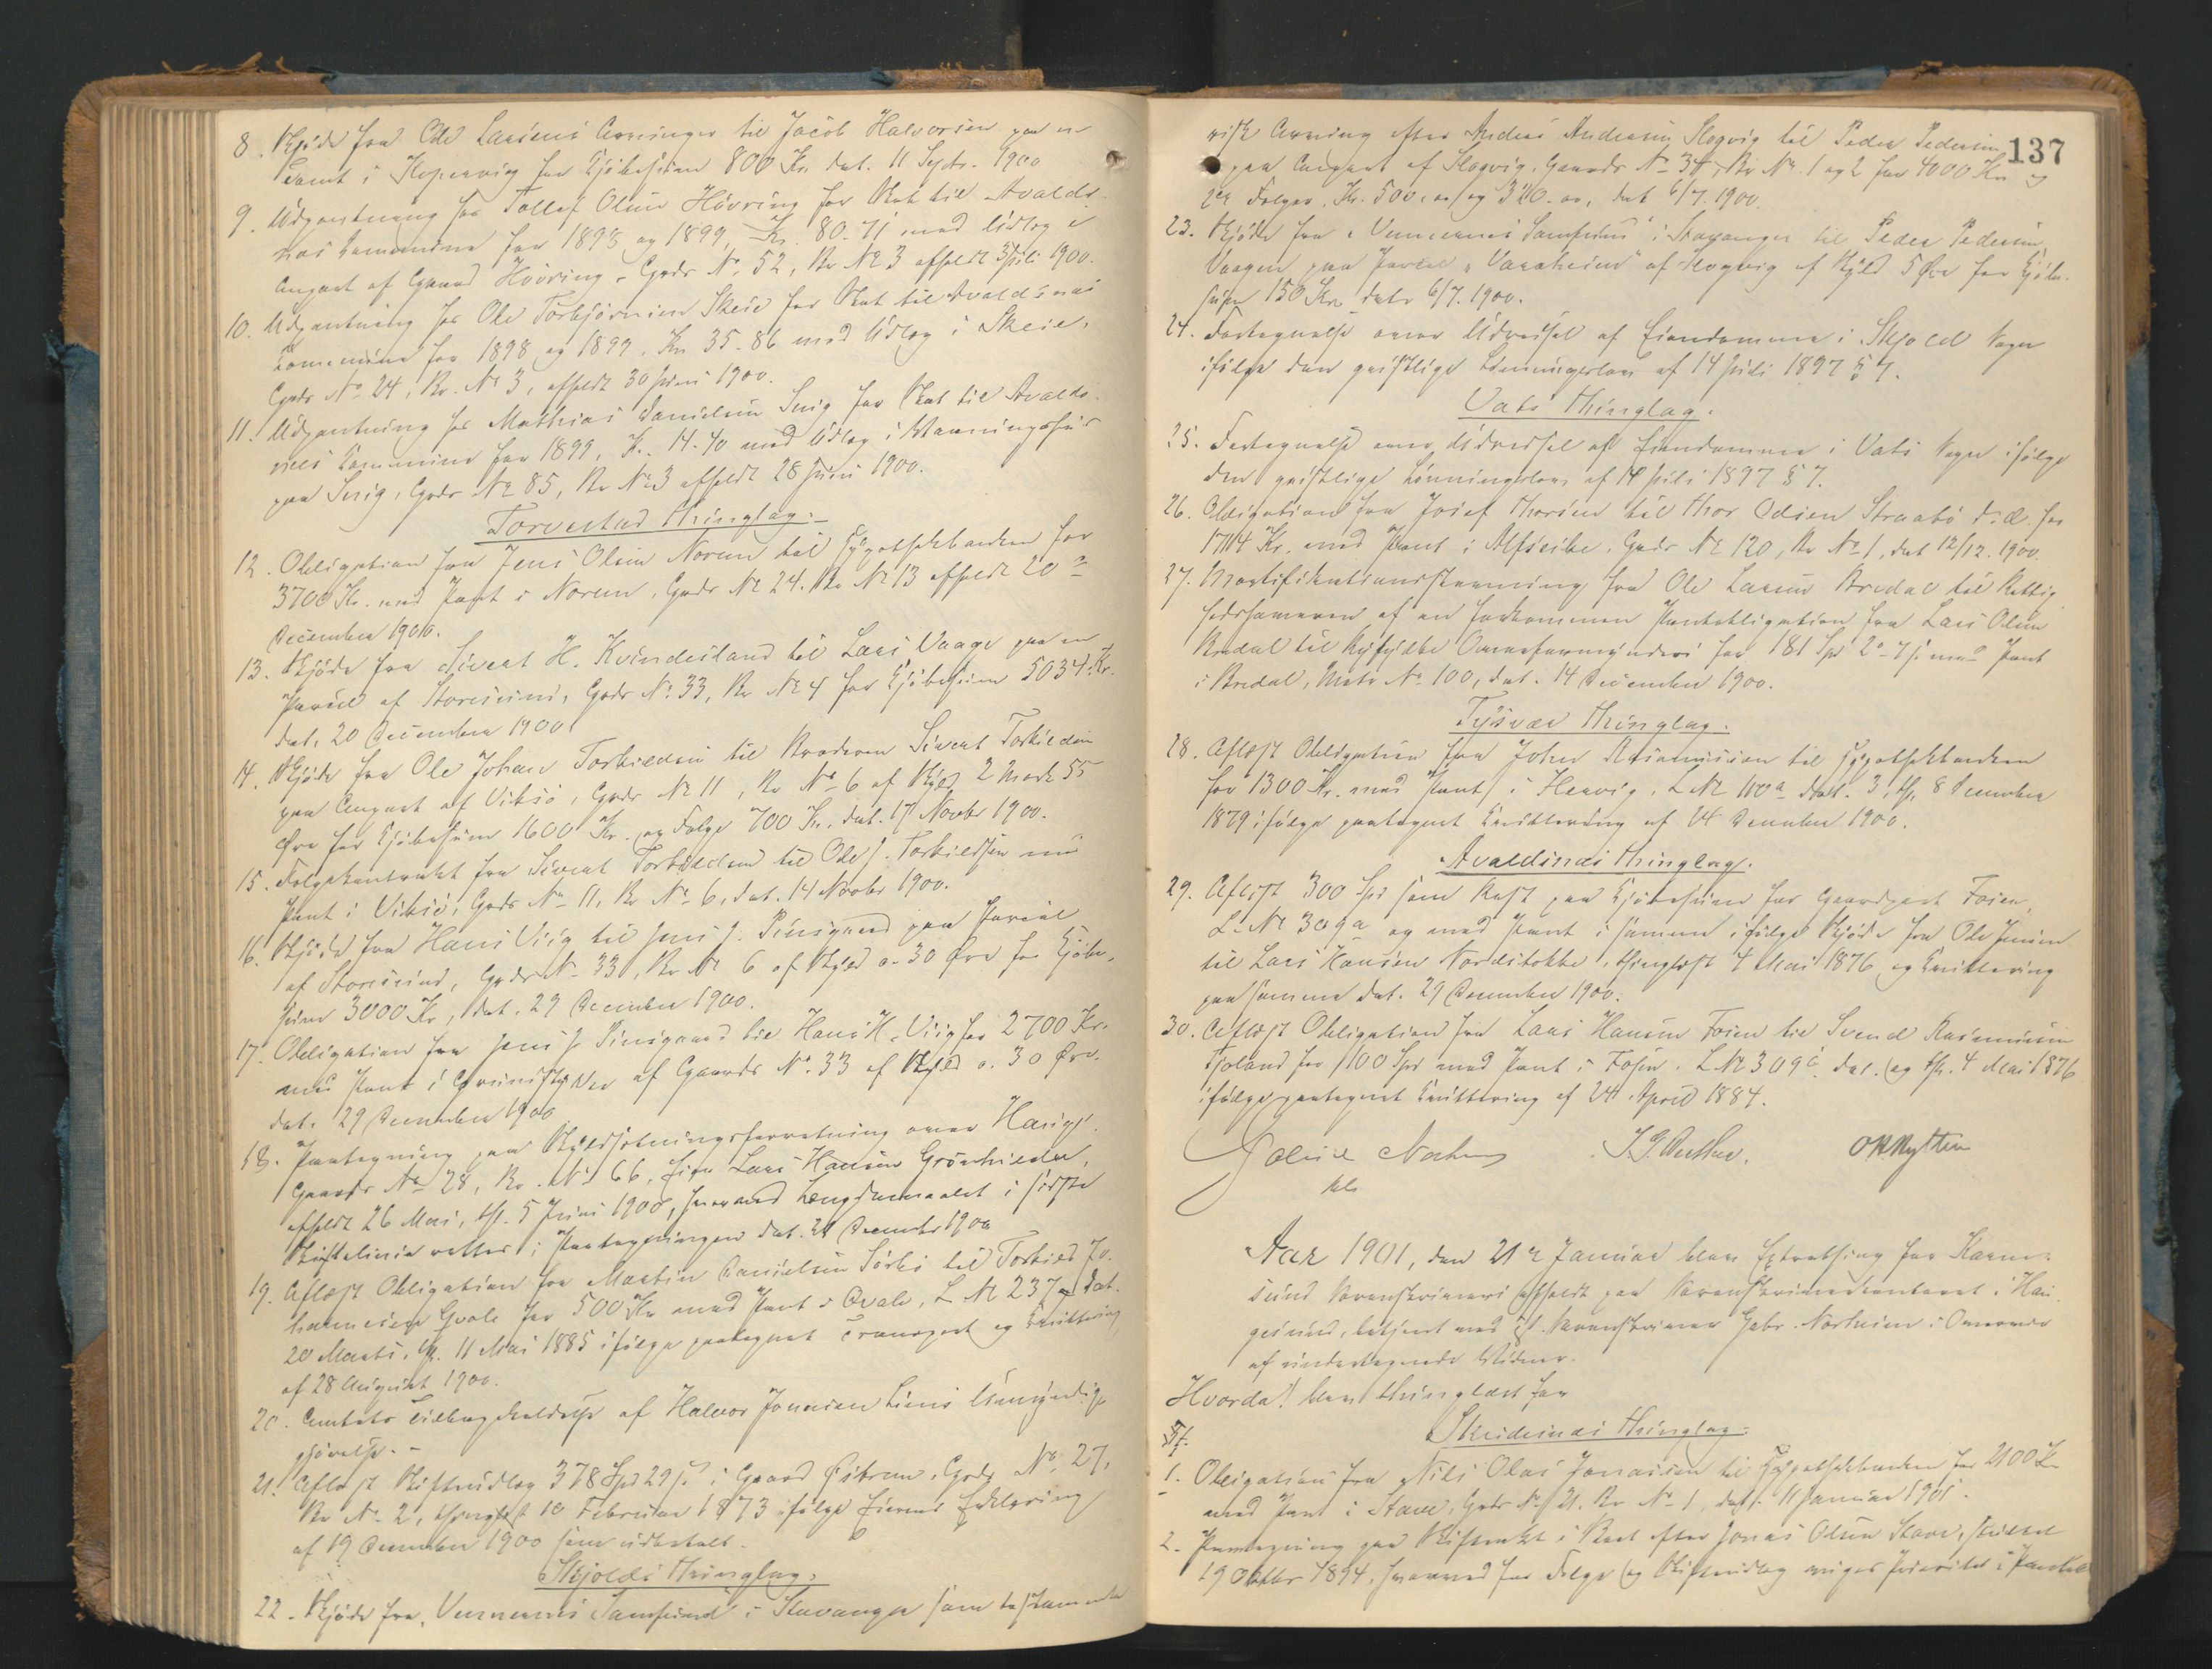 8. Skjøde fra Ole Larsens Arvinger til Jacob Halvorsen paa en
Tomt i Kopervig for Kjøbesum 800 Kr. dat. 11 Septr. 1900
9. Udpantning hos Tollef Olsen Hövring for Skat til Avalds-
nes Kommune for 1898 og 1899, Kr. 80.71 med Udlæg i
Anpart af Gaard Hövring, Grds No. 52, Br No 3 afholdt 3 Juli 1900.
10. Udpantning hos Ole Torbjörnsen Skeie for Skat til Avaldsnes
Kommune for 1898 og 1899, Kr 35.86 med Udlæg i Skeie,
Grds No 24, Br. No 3, afholdt 30 Juni 1900.
11. Udpantning hos Mathias Danielsen Snig for Skat til Avalds-
nes Kommune for 1899, Kr. 14.40 med Udlæg i Vaaningshus
paa Snig, Grds No 85, Br No 3 afholdt 28 Juni 1900.
Torvestad Thinglag.
12. Obligation fra Jens Olsen Norem til Hypothekbanken for
3700 Kr. med Pant i Norem, Grds No 24. Br No 13 afholdt 20de
December 1900.
13. Skjøde fra Sivert H. Kvindesland til Lars Vaage paa en
Parcel af Storesund, Grds No. 33, Br No 4 for Kjøbesum 5034 Kr.
dat. 20 December 1900
14. Skjøde fra Ole Johan Torkildsen til Broderen Sivert Torkildsen
paa Anpart af Viksö, Grds No 11, Br No 6 af Skyld 2 Mark 55
Øre for Kjøbesum 1600 Kr. og Folge 700 Kr. dat. 17 Novbr 1900.
15. Folgekontrakt fra Sivert Torkildsen til Ole J. Torkildsen med
Pant i Viksö, Grds No 11, Br No 6, dat. 14 Novbr 1900.
16. Skjøde fra Hans Viig til Jens J. Pinsgaard paa Parcel
af Storesund, Grds No 33, Br No 6 af Skyld 0.30 Øre for Kjøbe-
sum 3000 Kr, dat. 29 December 1900.
17. Obligation fra Jens J. Pinsgaard til Hans H. Viig for 2700 Kr.
med Pant i Grundstykke af Gaards No. 33 af Skyld 0.30 Øre.
dat. 29 December 1900
18. Paategning paa Skyldsætningsforretning over Hauge,
Gaards No 28, Br. No 66, Eier Lars Hansen Grönhilder,
afholdt 26 Mai, thl. 5 Juni 1900, hvorved Længdemaalet i sidste
Skiftelinie rettes i Paategningen dat. 24 December 1900
19. Aflæst Obligation fra Martin Danielsen Sörhi til Torkild Jo-
hannesen Qvale for 500 Kr med Pant i Qvale, L No 237 dat.
20 Marts, thl. 11 Mai 1885 ifølge paategnet Transport og Kvittering
af 28 August 1900.
20. Amtets Tilbagekaldelse af Halvor Jonassen Liens Umyndig-
gjørelse.
21. Aflæst Skifteudlæg 378 Spd 29 s i Gaard Østrem, Grds No 27,
Br No 2, thinglæst 10 Februar 1873 ifølge Eierens Erklæring
af 19 December 1900 som udbetalt.
Skjolds Thinglag.
22. Skjøde fra "Vennernes Samfund" i Stavanger som testamenta-
137
risk Arving efter Anders Andersen Slogvig til Peder Pedersen
paa Anpart af Slogvig, Gaards No 34, Br No. 1 og 2 for 4000 Kr og
Folger, Kr. 500.00 og 320.00, dat 6/7. 1900.
23. Skjøde fra "Vennernes Samfund" i Stavanger til Peder Pedersen
Vaagen paa Parcel "Varaheim" af Slogvig af Skyld 5 Øre for Kjøbe-
sum 150 Kr dat 6/7. 1900.
24. Fortegnelse over Udveisel af Eiendomme i Skjold Sogn
ifølge den geistlige Lønningslov af 14 Juli 1897 § 7.
Vats Thinglag.
25. Fortegnelse over Udveisel af Eiendomme i Vats Sogn ifølge
den geistlige Lønningslov af 14 Juli 1897 § 7.
26. Obligation fra Josef Thorsen til Thor Odsen Straabö d.æ. for
1714 Kr. med Pant i Alfseike, Grds No 120, Br No 1, dat 12/12. 1900.
27. Mortifikationsstevning fra Ole Larsen Bredal til Rettig-
hedshaveren af en forkommen Pantobligation fra Lars Olsen
Bredal til Ryfylke Overformynderi for 181 Spd 2-7 s med Pant
i Bredal, Matr No 100, dat. 14 December 1900.
Tysvær Thinglag.
28. Aflæst Obligation fra John Rasmussen til Hypothekbanken
for 1300 Kr. med Pant i Hervig, L No 110a dat. 3, thl. 8 December
1879 ifølge paategnet Kvittering af 24 December 1900.
Avaldsnes Thinglag.
29. Aflæst 300 Spd som Rest paa Kjøbesum for Gaardpart Fosen
L No 309a og med Pant i samme ifølge Skjøde fra Ole Jensen
til Lars Hansen Nordstokke, thinglæst 4 Mai 1876 og Kvittering
paa samme dat. 29 December 1900.
30. Aflæst Obligation fra Lars Hansen Fosen til Svend Rasmussen
Tjoland for 100 Spd med Pant i Fosen, L No 309c dat. og thl. 4 Mai 1876
ifølge paategnet Kvittering af 24 April 1884.
Aar 1901, den 21de Januar blev Extrathing for Karm-
sund Sorenskriveri afholdt paa Sorenskriverkontoret i Hau-
gesund, betjent med cst. Sorenskriver Gabr. Norheim i Overvær
af undertegnede Vidner.
Hvorda! blev thinglæst for
Skudesnes Thinglag.
1. Obligation fra Nils Olas Jonassen til Hypothekbanken for 2100 Kr
med Pant i Stave, Grds No 21, Br No 1, dat. 11 Januar 1901.
2. Paategning paa Skifteakt i Boet efter Jonas Olsen Stave, sluttet
19 Oktbr 1894, hvorved for Folge og Skifteudlæg viges Prioritet i